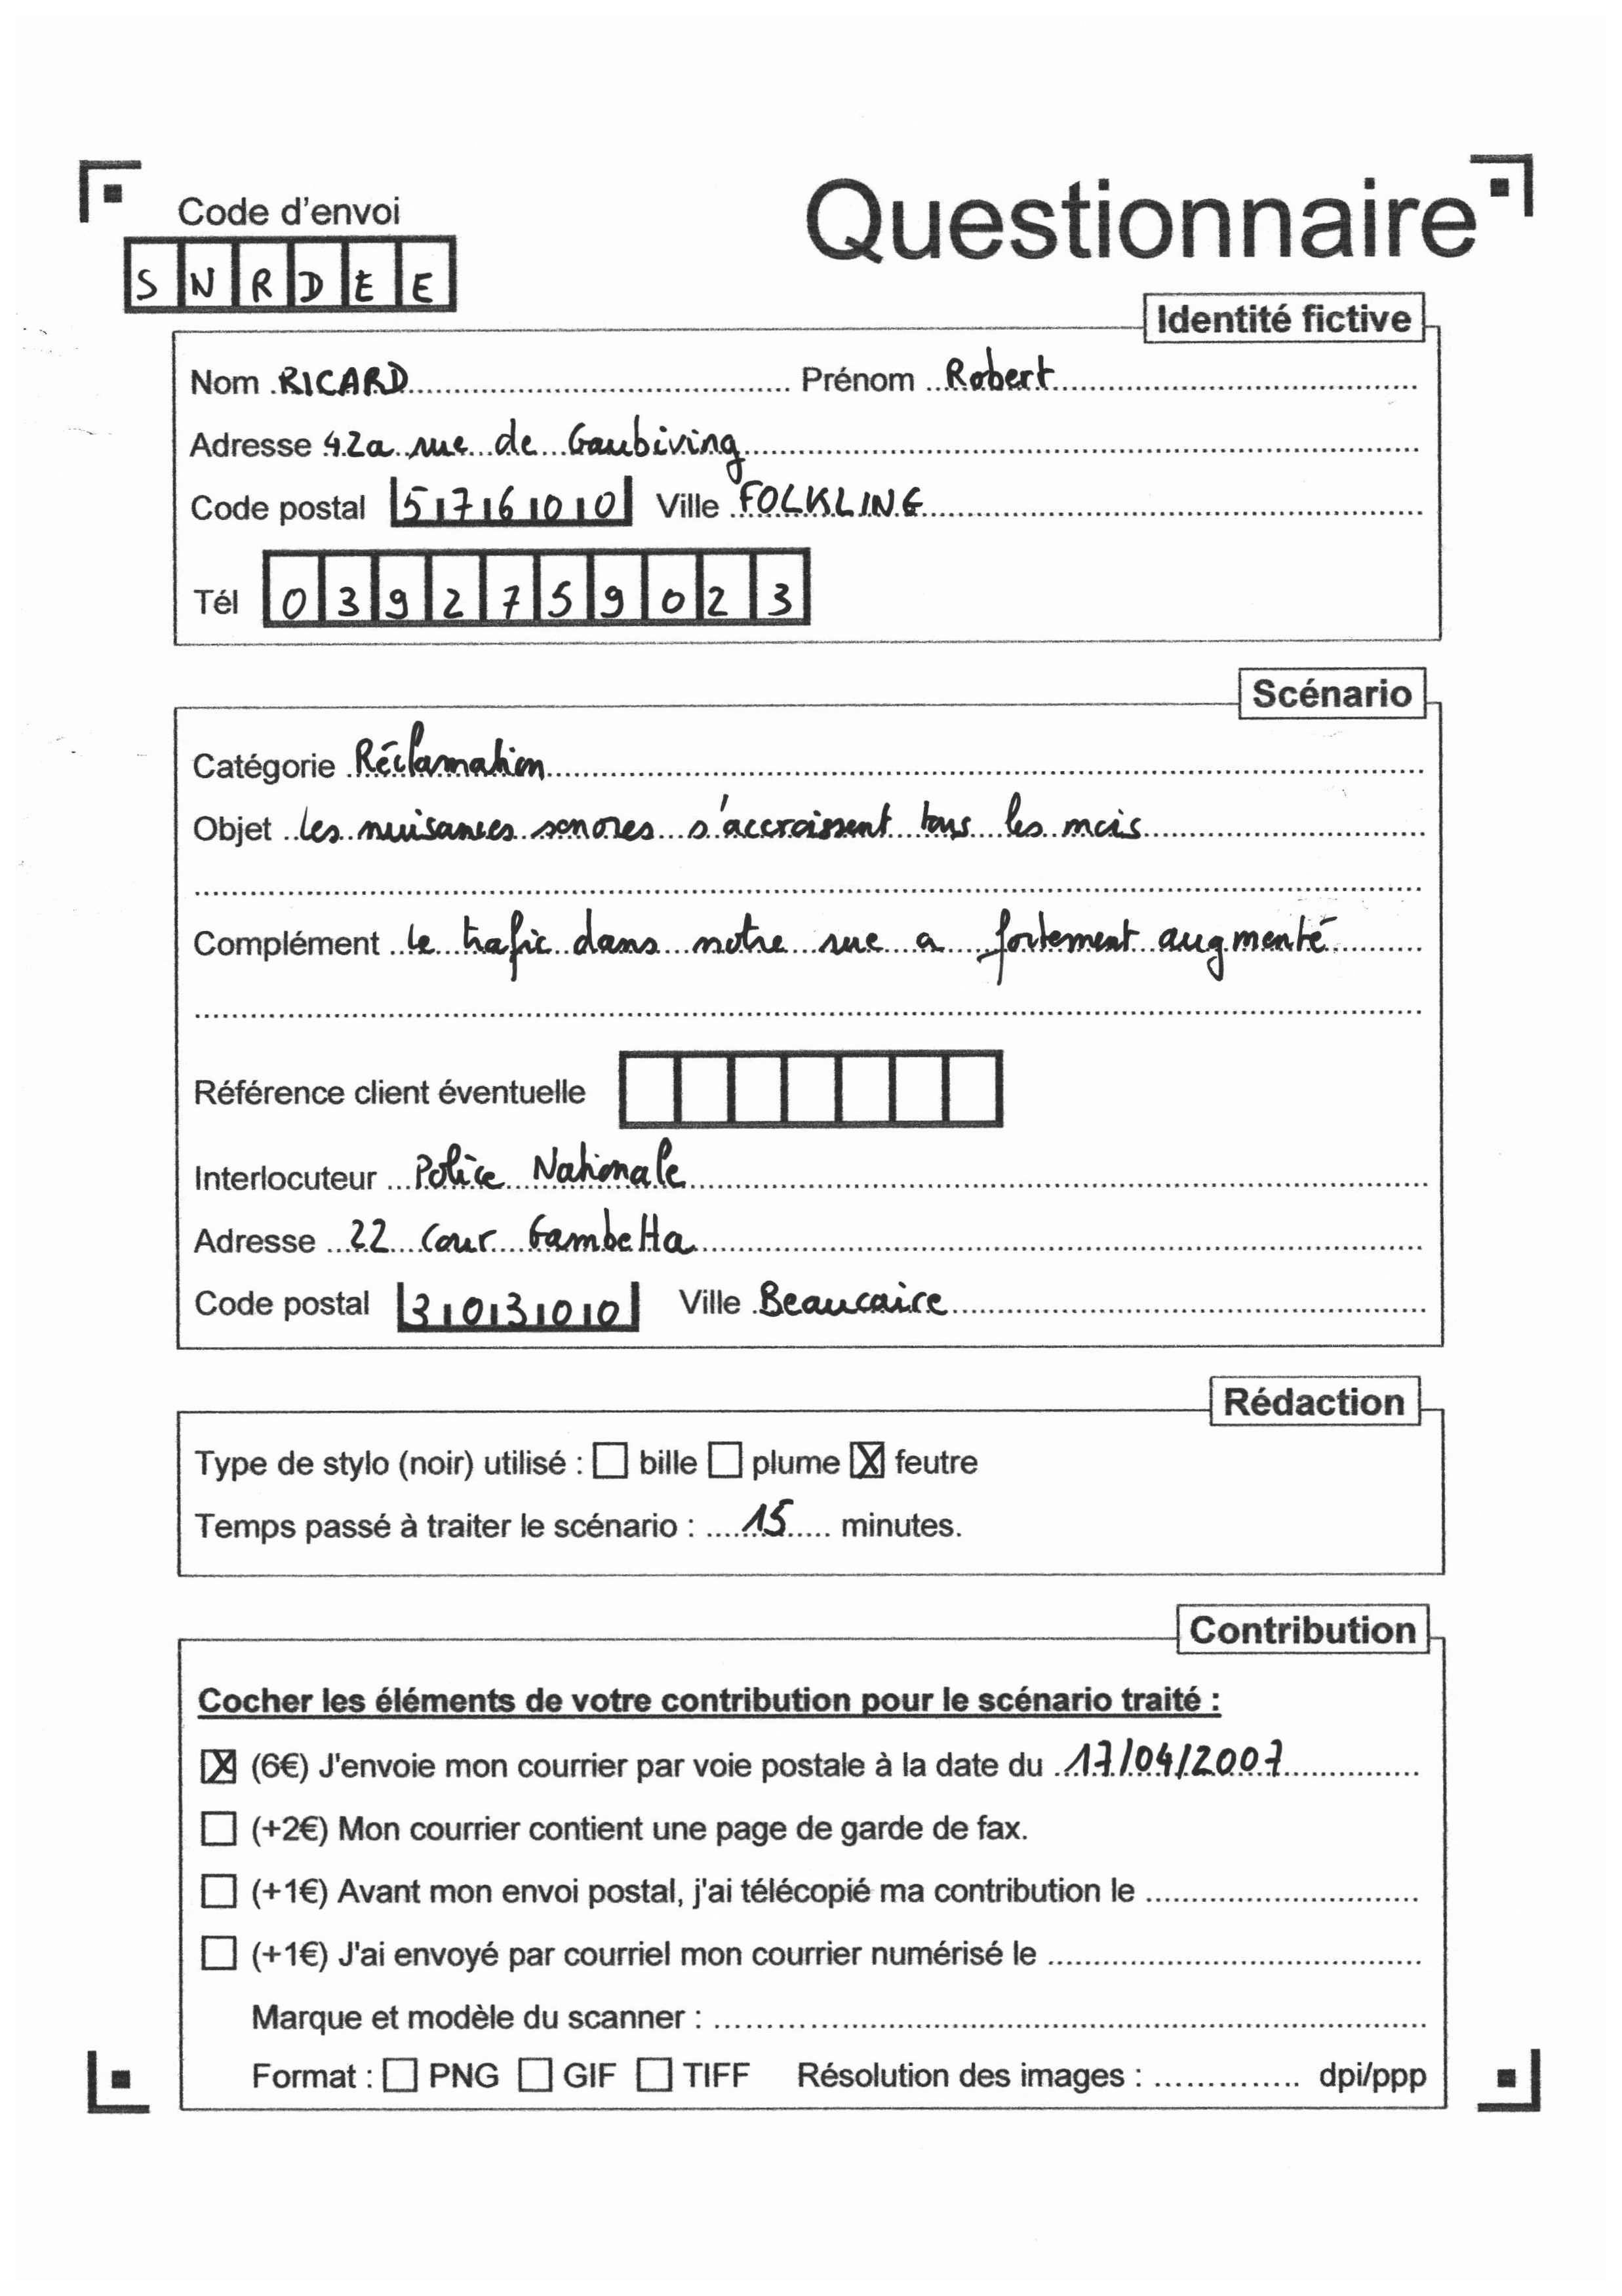 Code d'envoi
Questionnaire
SNRDEE
Identité fictive
Nom RICARD Prénom Robert
Adresse 42a rue de Gaubiving
Code postal 57600 Ville FOLKLING
Tél 0392759023
Scénario
Catégorie Réclamation
Objet Les nuisances sonores s'accroissent tous les mois
Complément Le trafic dans notre rue a fortement augmenté
Référence client éventuelle
Interlocuteur Police Nationale
Adresse 22 Cour Gambetta
Code postal 30300 Ville Beaucaire
Rédaction
Type de stylo (noir) utilisé : ☐ bille ☐ plume ☒ feutre
Temps passé à traiter le scénario : 15 minutes.
Contribution
Cocher les éléments de votre contribution pour le scénario traité :
☒ (6€) J'envoie mon courrier par voie postale à la date du 17/04/2007
☐ (+2€) Mon courrier contient une page de garde de fax.
☐ (+1€) Avant mon envoi postal, j'ai télécopié ma contribution le
☐ (+1€) J'ai envoyé par courriel mon courrier numérisé le
Marque et modèle du scanner :
Format : ☐ PNG ☐ GIF ☐ TIFF Résolution des images : dpi/ppp